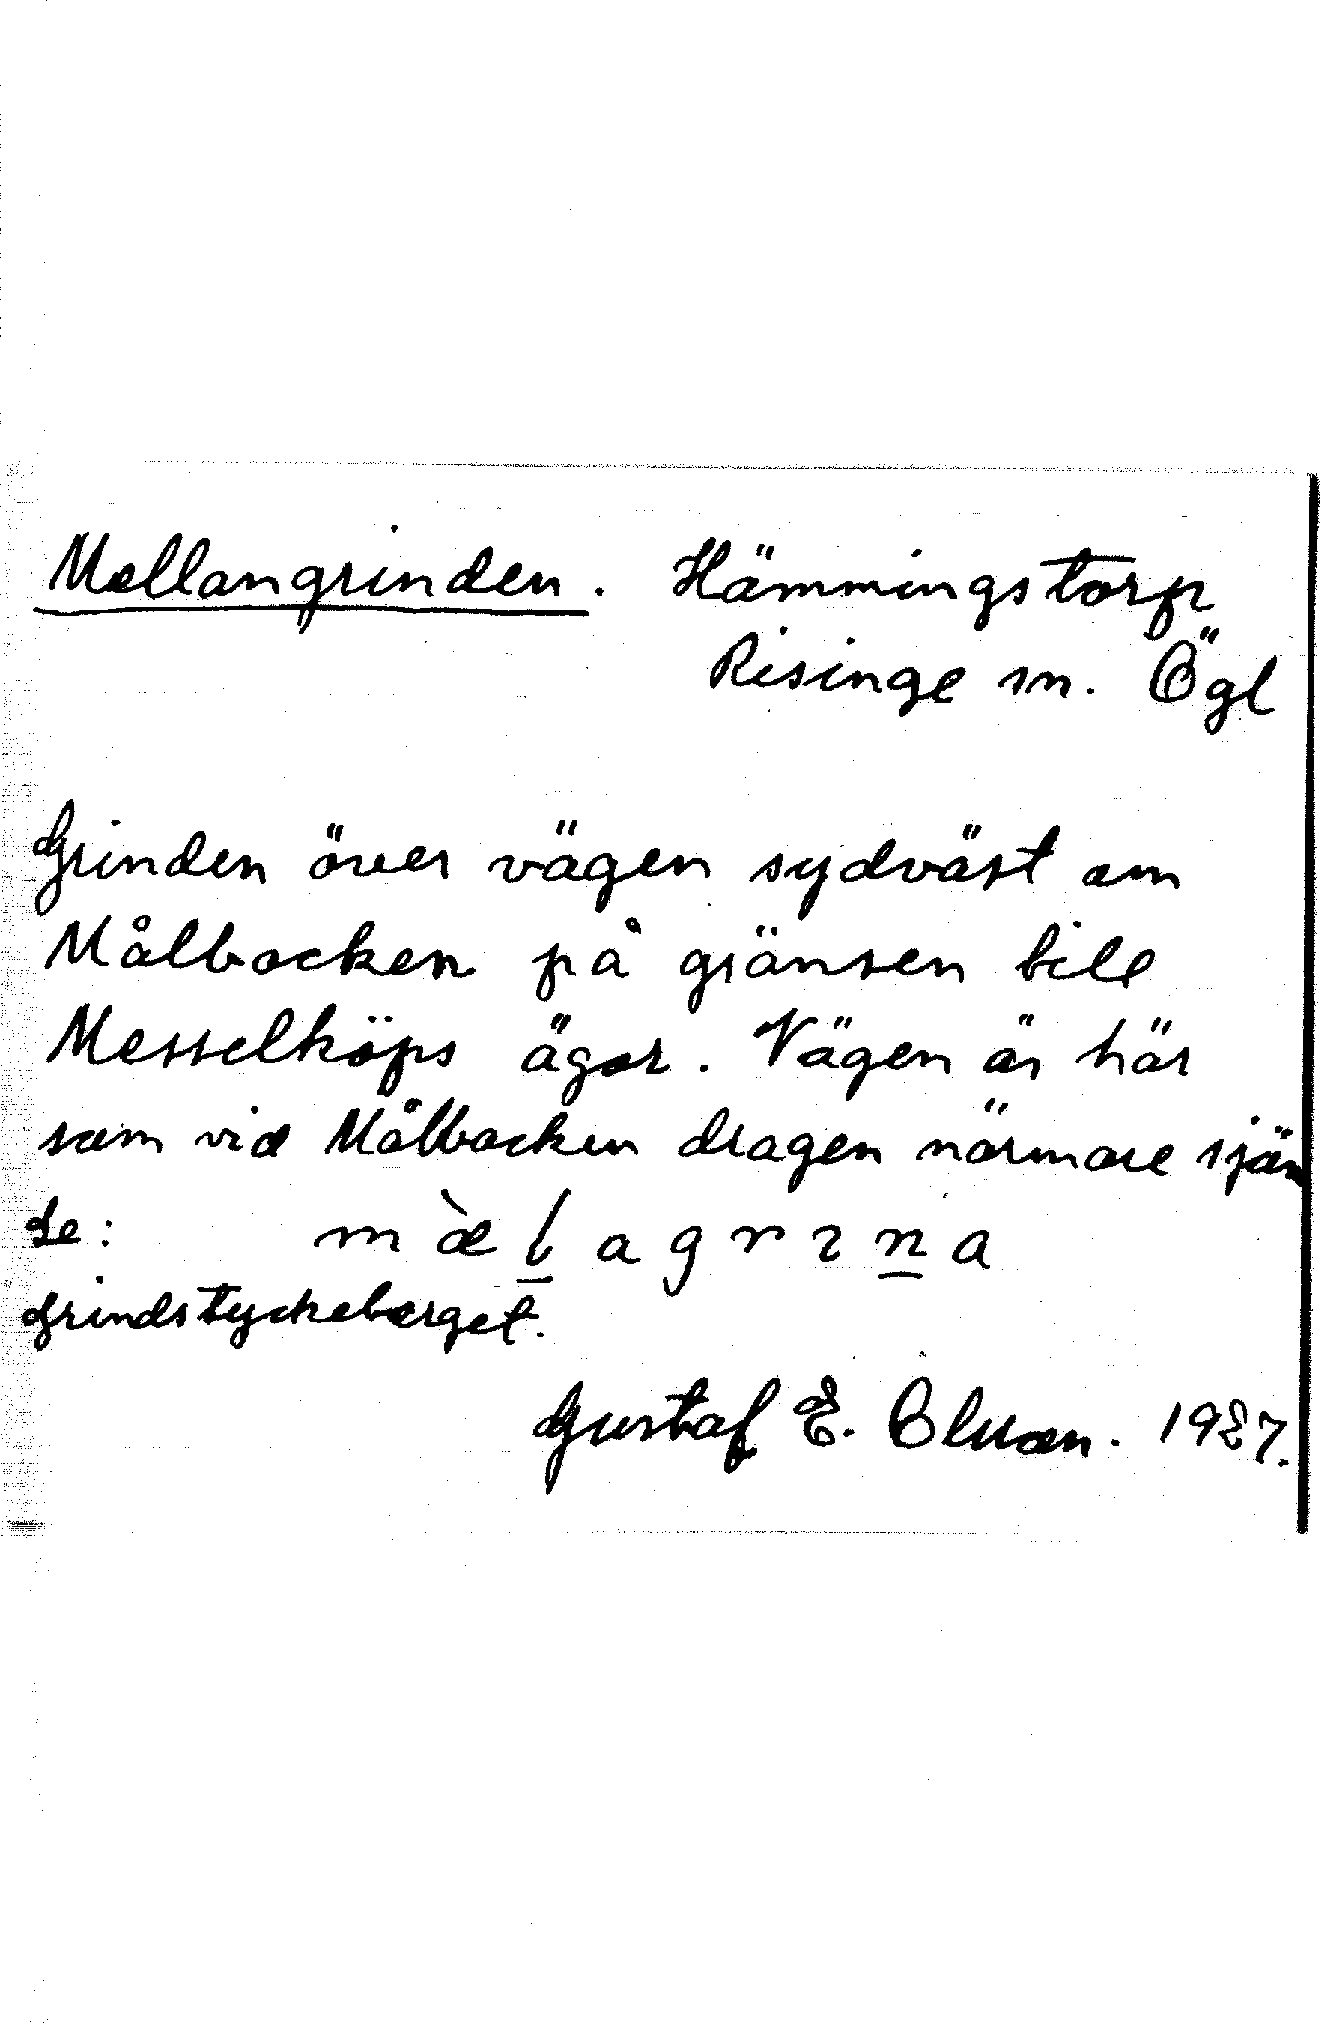 Mellangrinden. Hämmingstorp
Risinge sn. Ögl
Grinden över vägen sydväst om
Målbacken på gränsen till
Messelköps ägor. Vägen är här
som vid Målbacken dragen närmare sjön
Se:
m æ̀ l̲ a g r ı n̲ a
Grindstyckeberget.
Gustaf E. 1927.